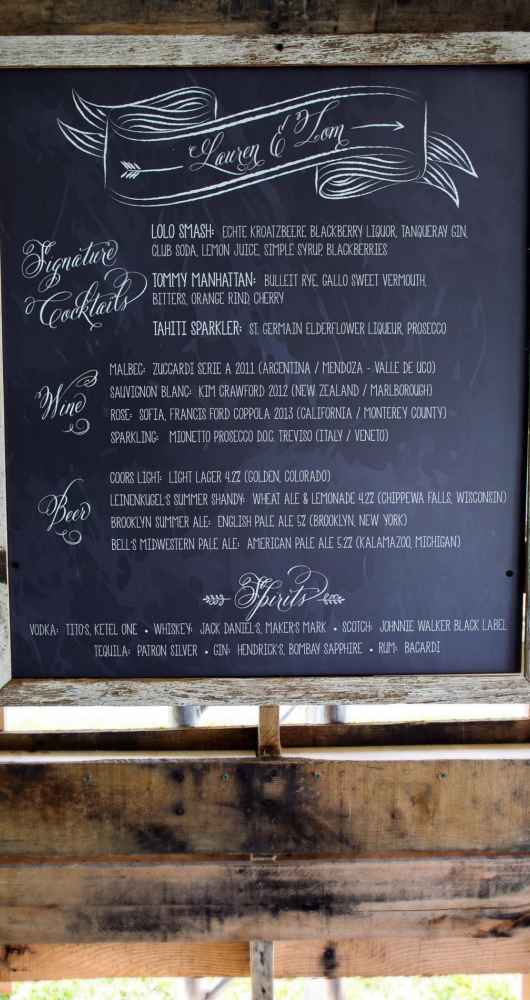 Lauren & Tom
Signature
Cocktails
LOLO SMASH: ECHTE KROATZBEERE BLACKBERRY LIQUOR, TANQUERAY GIN,
CLUB SODA, LEMON JUICE, SIMPLE SYRUP, BLACKBERRIES
TOMMY MANHATTAN: BULLEIT RYE, GALLO SWEET VERMOUTH,
BITTERS, ORANGE RIND, CHERRY
TAHITI SPARKLER: ST. GERMAIN ELDERFLOWER LIQUEUR, PROSECCO
Wine
MALBEC: ZUCCARDI SERIE A 2011 (ARGENTINA / MENDOZA - VALLE DE UCO)
SAUVIGNON BLANC: KIM CRAWFORD 2012 (NEW ZEALAND / MARLBOROUGH)
ROSE: SOFIA, FRANCIS FORD COPPOLA 2013 (CALIFORNIA / MONTEREY COUNTY)
SPARKLING: MIONETTO PROSECCO D.O.C. TREVISO (ITALY / VENETO)
Beer
COORS LIGHT: LIGHT LAGER 4.2% (GOLDEN, COLORADO)
LEINENKUGEL'S SUMMER SHANDY: WHEAT ALE & LEMONADE 4.2% (CHIPPEWA FALLS, WISCONSIN)
BROOKLYN SUMMER ALE: ENGLISH PALE ALE 5% (BROOKLYN, NEW YORK)
BELL'S MIDWESTERN PALE ALE: AMERICAN PALE ALE 5.2% (KALAMAZOO, MICHIGAN)
Spirits
VODKA: TITO'S, KETEL ONE • WHISKEY: JACK DANIEL'S, MAKER'S MARK • SCOTCH: JOHNNIE WALKER BLACK LABEL
TEQUILA: PATRON SILVER • GIN: HENDRICK'S, BOMBAY SAPPHIRE • RUM: BACARDI